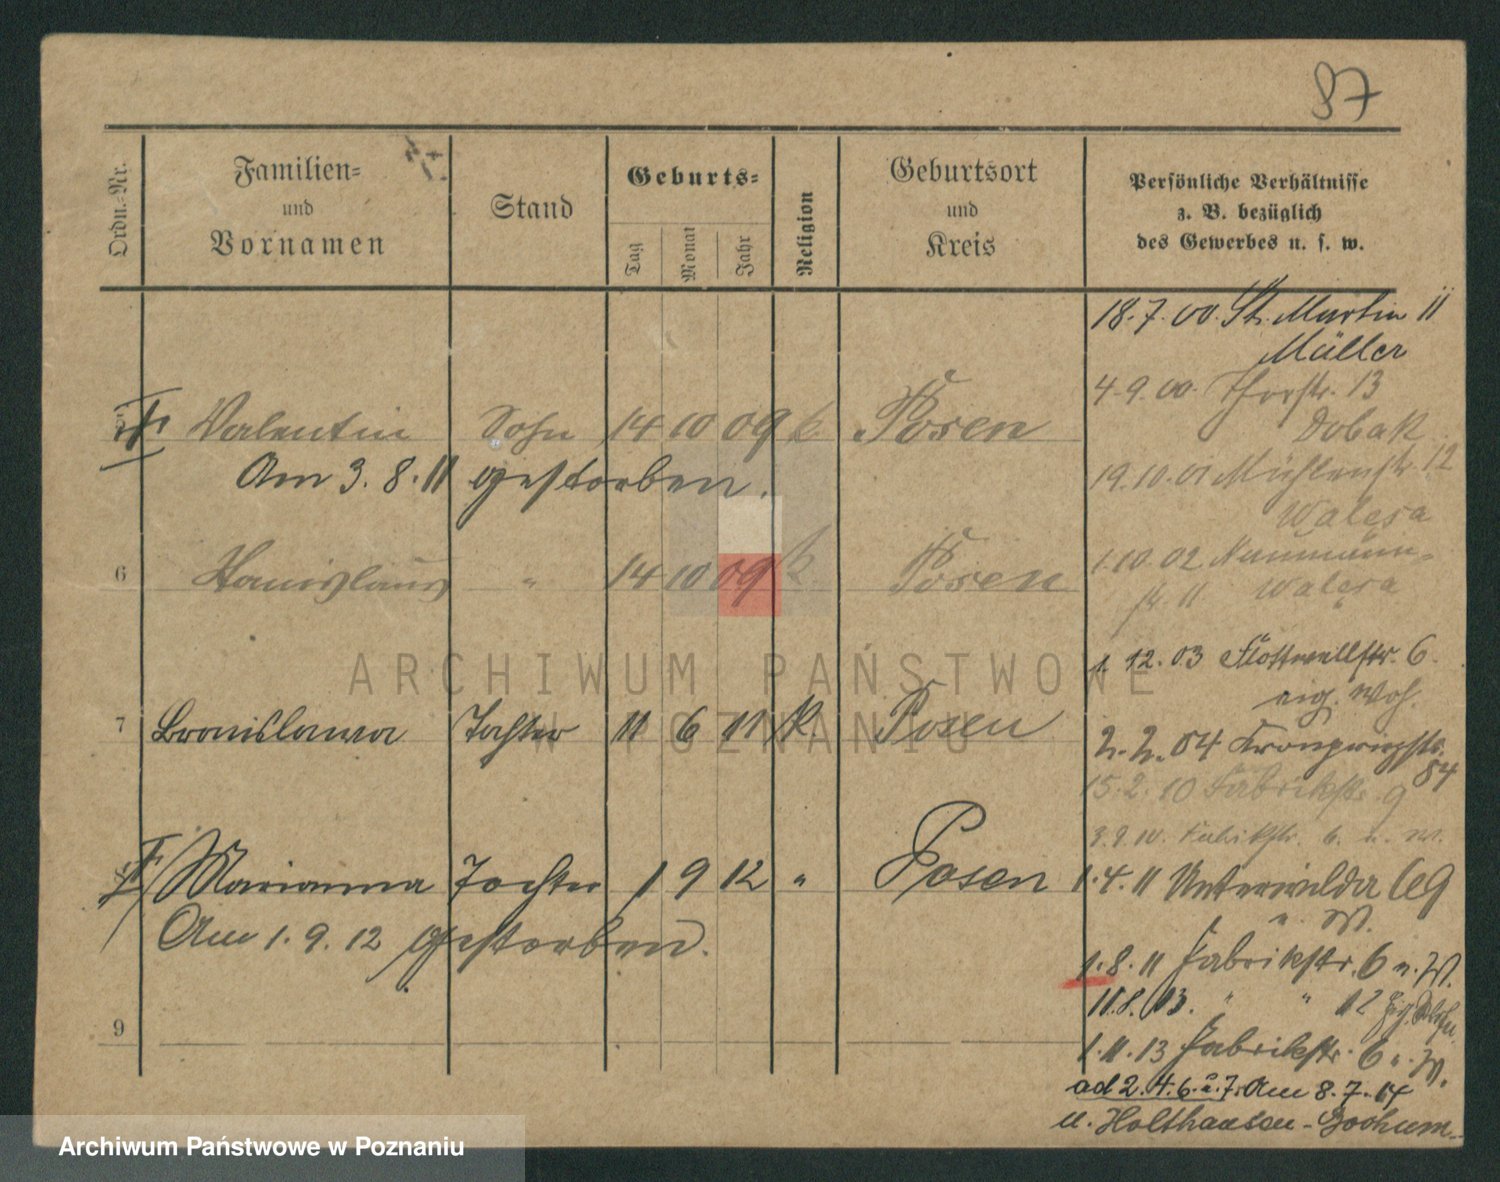 87
Ordn.-Nr.
Familien-
und
Vornamen
Stand
Geburts-
Tag
Monat
Jahr
Religion
Geburtsort
und
Kreis
Persönliche Verhältnisse
z. B. bezüglich
des Gewerbes u. s. w.
Valentin Sohn 14 10 09 k. Posen
Am 3. 8. 11 gestorben.
6 Stanislaus " 14 10 09 k Posen
7 Bronislawa Tochter 11 6 11 k. Posen
Marianna Tochter 1 9 12 " Posen
Am 1. 9. 12 gestorben.
9
18. 7. 00. St. Martin 11
Müller
4. 9. 00. Thorstr. 13
Dobak
19. 10. 01 Mühlenstr. 12
Walesa
1. 10. 02 Naumann-
str. 11 Walesa
1. 12. 03 Flottwellstr. 6.
eig. Woh.
2. 2. 04 Kronprinzstr.
84
15. 2. 10 Fabrikstr. 9
3. 9. 10. Fabrikstr. 6. u. W.
1. 4. 11 Unterwilda 69
u. W.
1. 8. 11 Fabrikstr. 6 u. W.
11. 8. 13. " " 12
1. 11. 13 Fabrikstr. 6 u. W.
ad 2. 4. 6. u. 7. Am 8. 7. 14
n. Holthausen-Bochum
ARCHIWUM PAŃSTWOWE
W POZNANIU
Archiwum Państwowe w Poznaniu